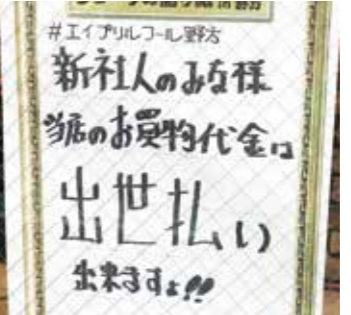 #エイプリルフール野方
新社人のみな様
当店のお買物代金は
出世払い
出来ますよ!!